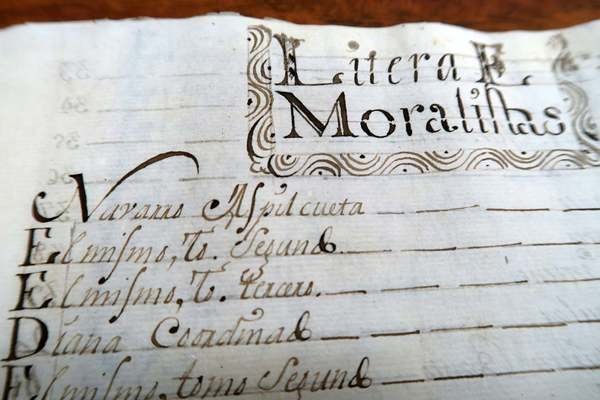 Litera E.
Moralistas
Navarro Aspilcueta
El mismo, to. segundo
El mismo, To. tercero.
Diana Coordinado
El mismo, tomo segundo